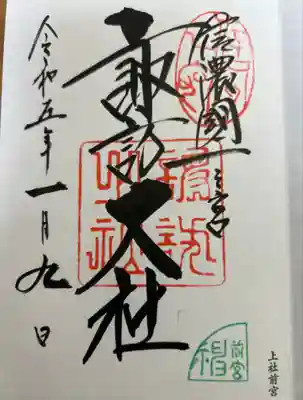 信濃國一之宮
諏訪大社
令和五年一月九日
諏訪大社
前宮
上社前宮